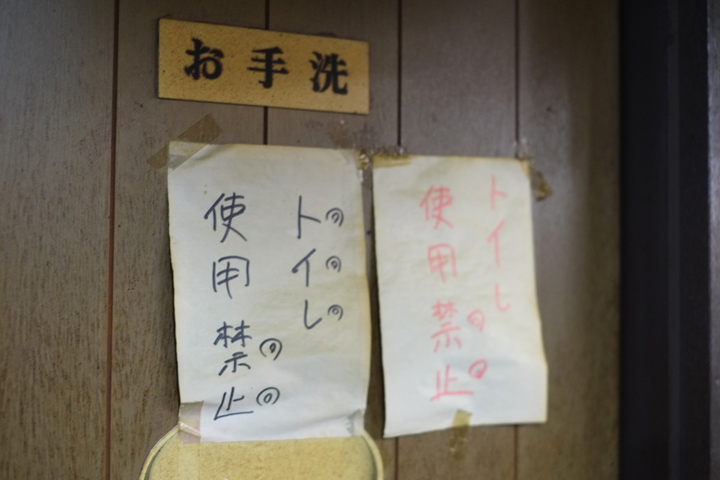 お手洗
トイレ
使用禁止
トイレ
使用禁止